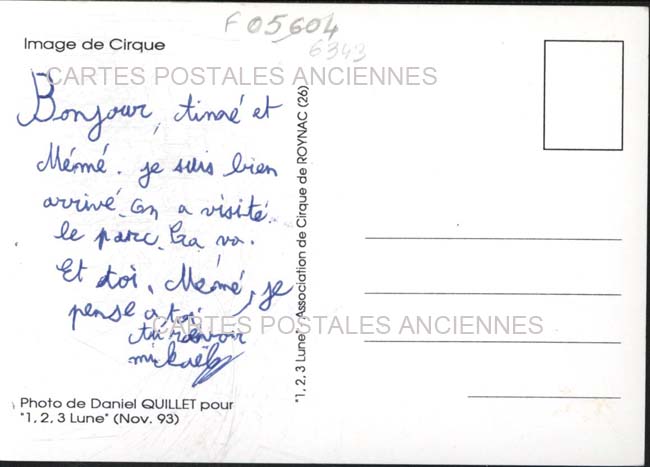 F 05604
6343
Image de Cirque
CARTES POSTALES ANCIENNES
Bonjour, et
Mémé. je suis bien
arrivé. on a visité
le parc. Ça va.
Et toi, Mémé, je
pense a toi
au revoir
mickaël
CARTES POSTALES ANCIENNES
Photo de Daniel QUILLET pour
"1, 2, 3 Lune" (Nov. 93)
"1, 2, 3 Lune" - Association de Cirque de ROYNAC (26)